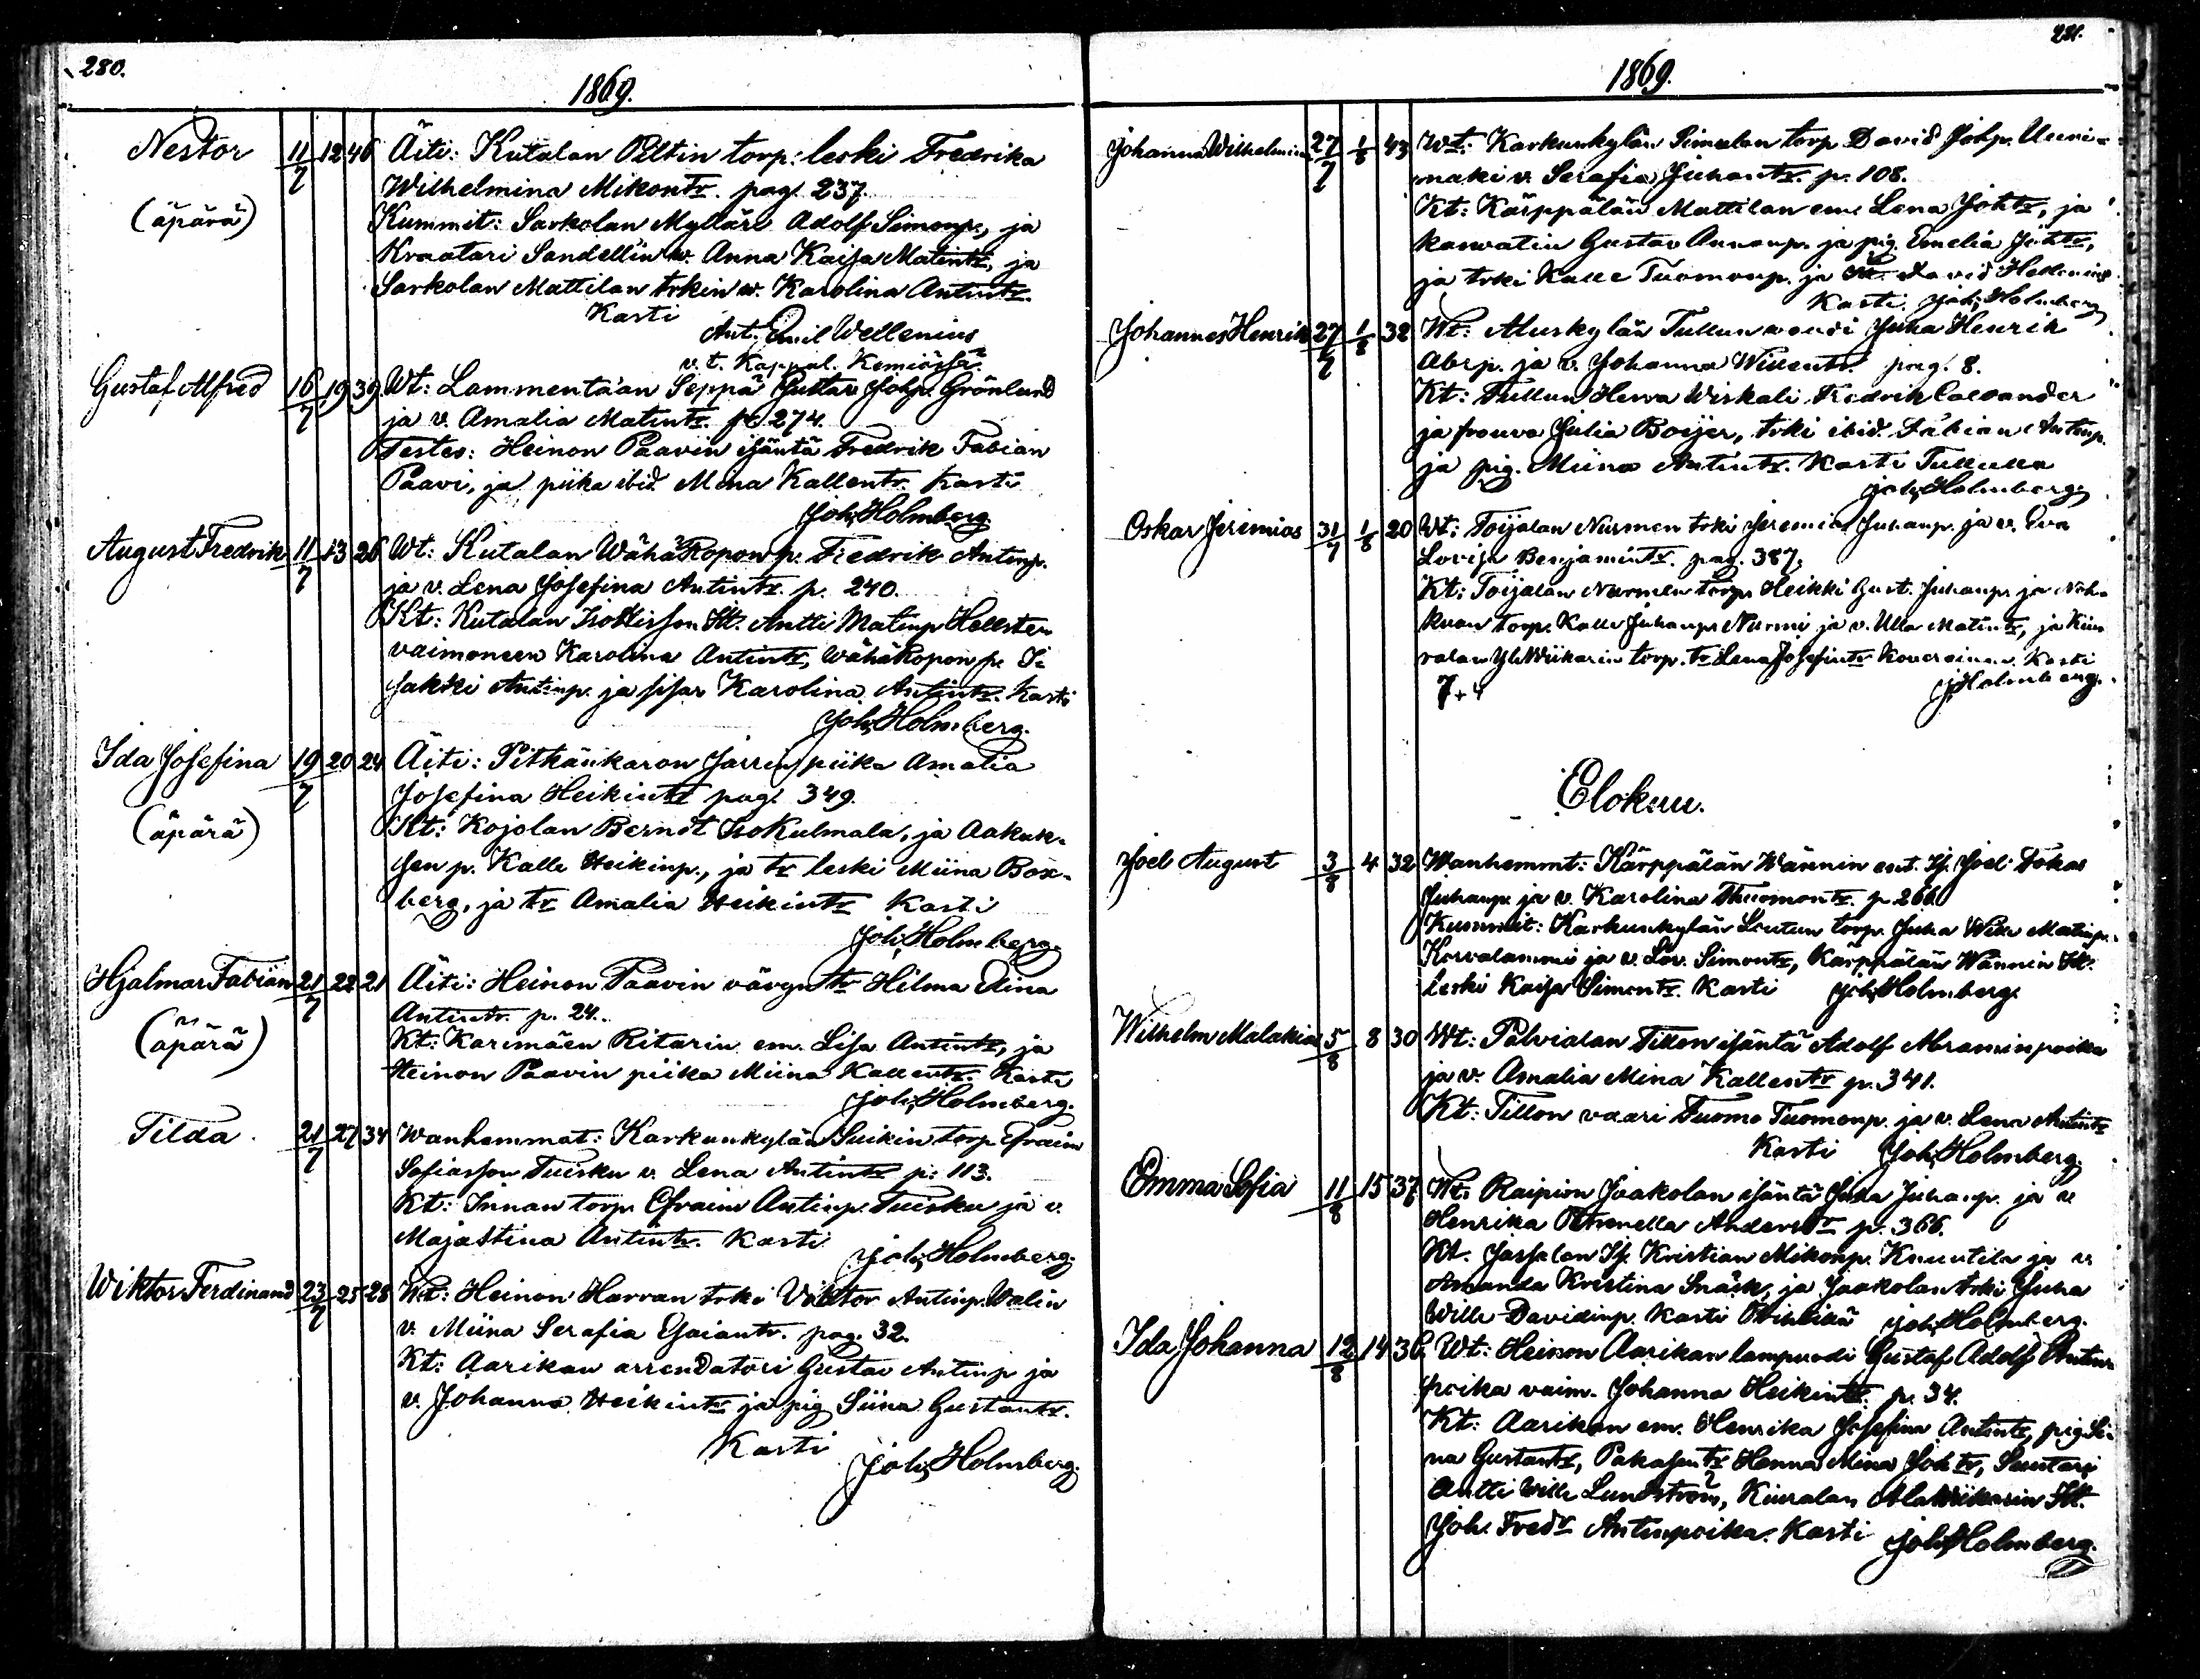 280.
1869.
Nestor 11/7 12 46 Äiti: Kutalan Piltin torp: leski Fredrika
Wilhelmina Mikontr. pag. 237.
(äpärä) Kummit: Sarkolan Mylläri Adolf Simonp., ja
Kraatari Sandellin w. Anna Kaisa Matintr, ja
Sarkolan Mattilan trkin w. Karolina Antintr.
Kasti
Ant. Emil Wellenius
v. t. Kappal. Kemiössä.
Gustaf Alfred 16/7 19 39 Wt: Lammentaan Seppä Gustav Johp. Grönlund
ja v. Amalia Matintr. p. 274.
Testes: Heinon Paavin isäntä Fredrik Fabian
Paavi, ja piika ibid. Mina Kallentr. Kasti
Joh. Holmberg
August Fredrik 11/7 13 26 Wt: Kutalan WähäRopon p. Fredrik Antinp.
ja v. Lena Josefina Antintr. p. 240.
Kt: Kutalan Antti Matinp Hellsten
vaimoneen Karolina Antintr, WähäRopon p. I-
sakki Antinp. ja sisar Karolina Antintr. Kasti
Joh. Holmberg.
Ida Josefina 19/7 20 24 Äiti: Pitkänkaron Jarrin piika Amalia
Josefina Heikintr pag. 349.
(äpärä) Kt: Kojolan Berndt IsoKulmala, ja Aakuk-
sen p. Kalle Heikinp., ja tr leski Miina Box-
berg, ja tr Amalia Heikintr Kasti
Joh. Holmberg.
Hjalmar Fabian 21/7 22 21 Äiti: Heinon Paavin vävyn tr Hilma Elina
Antintr. p. 24.
(äpärä) Kt: Karimäen Ritarin em. Lisa Antintr, ja
Heinon Paavin piika Miina Kallentr. Kasti
Joh. Holmberg.
Tilda. 21/7 27 34 Wanhemmat: Karkunkylän Suikin torp Efraim
Sofiasson Tuisku v. Lena Antintr p. 113.
Kt: Innan torp. Efraim Antinp. Tuisku ja v.
Majastina Antintr. Kasti
Joh. Holmberg.
Wiktor Ferdinand 23/7 25 28 Wt: Heinon Harran trki Viktor Antinp. Valin
v. Miina Serafia Esaiantr. pag. 32.
Kt: Aarikan arrendatori Gustav Antinp ja
v. Johanna Heikintr ja pig Siina Gustantr.
Kasti
Joh. Holmberg.
281.
1869.
Johanna Wilhelmina 27/7 1/8 43 Wt: Karkunkylän Simalan torp David Johp. Uuni-
maki v. Serafia Juhantr. p. 108.
Kt: Kärppälän Mattilan em. Lena Johtr, ja
Kasvatin Gustav Aunanp. ja pig. Emelia Johtr,
ja trki Kalle Tuomonp. ja David
Kasti Joh. Holmberg
Johannes Henrik 27/7 1/8 32 Wt: Aluskylän Tullun wouti Juha Henrik
Abrp. ja v. Johanna Willentr. pag. 8.
Kt: Tullun Herra Wiskali Fredrik Calexander
ja frouva Julia Boijer, trki ibid. Fabian Antinp.
ja pig. Miina Antintr. Kasti Tullulla
Joh. Holmberg
Oskar Jeremias 31/7 1/8 20 Wt: Toijalan Nurmen trki Jeremias Juhanp. ja v. Eva
Lovisa Benjamintr. pag. 387.
Kt: Toijalan Nurmen torp. Heikki Gust. Juhanp. ja
torp. Kalle Juhanp. Nurmi ja v. Ulla Matintr, ja Kiu-
ralan torp. tr Lena Josefintr Kasti
7+4 J. Holmberg.
Elokuu.
Joel August 3/8 4 32 Wanhemmt: Kärppälän Wännin ent. Is. Joel Tokas
Juhanp. ja v. Karolina Thuomontr. p. 266
Kummit: Karkunkylän torp. Juha Matinp.
Korvalammi ja v. Lov. Simontr, Kärppälän Wännin
leski Kaisa Simontr. Kasti Joh. Holmberg.
Wilhelm Malakias 5/8 8 30 Wt: Palvialan Tillon isäntä Adolf Abraminpoika
ja v. Amalia Mina Kallentr p. 341.
Kt: Tillon vaari Tuomo Tuomonp. ja v. Lena Antintr
Kasti Joh. Holmberg.
Emma Sofia 11/8 15 37 Wt: Raipion Jaakolan isäntä Juha Juhanp. ja v.
Henrika Petronella Anderstr p. 366.
Kt. Jassalan Is. Kristian Mikonp. Knuutila ja v.
Amanda Kristina Snäsk, ja Jaakolan trki Juha
Wille Davidinp. Kasti Joh. Holmberg.
Ida Johanna 12/8 14 36 Wt: Heinon Aarikan lampuodi Gustaf Adolf Antin-
poika vaim. Johanna Heikintr. p. 34.
Kt: Aarikan em. Henrika Josefina Antintr, pig Si-
na Gustantr, Pakasen tr Hanna Mina Joh tr, Suutari
Antti Wille Lundström, Kiuralan AlaWiikarin
Joh. Fredr Antinpoika. Kasti Joh. Holmberg.